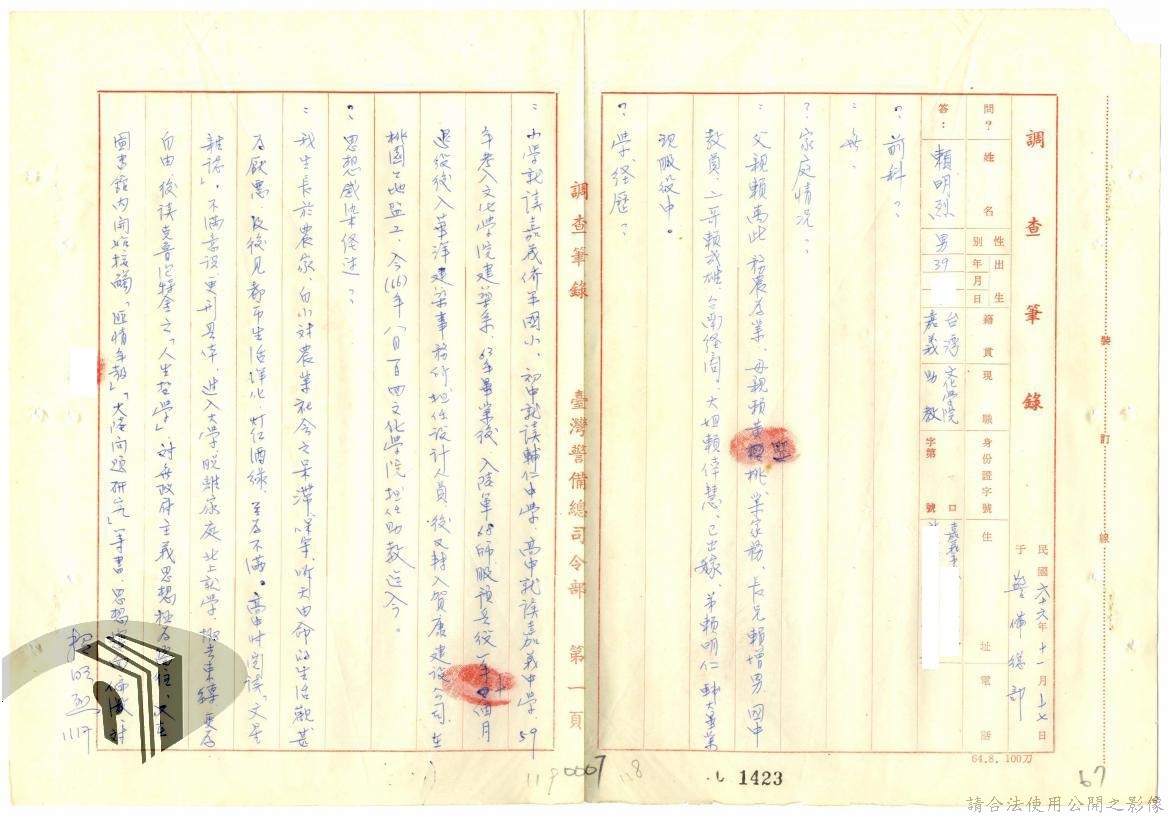 調查筆錄
民國六十六年十一月十七日
于警備總部
問？
姓名
性別
出生年月日
籍貫
現職
身份證字號
住址
電話
答：
賴明烈
男
39
台灣嘉義
文化學院助教
字第 號
口
嘉義
？前科？
：無。
？家庭情況？
：父親賴萬此務農為業、母親賴黃桃業家務、長兄賴增男、國中
教員、二哥賴武雄、台南經商、大姐賴偉慧、已出嫁、弟賴明仁、輔大畢業
現服役中。
？學經歷？
裝訂線
64.8.100刀
67
1423
118
調查筆錄 臺灣警備總司令部 第一頁
：小學就讀嘉義僑平國小、初中就讀輔仁中學、高中就讀嘉義中學、59
年考入文化學院建築系、63年畢業後、入陸軍師服預兵役一年十個月
退役後入華洋建築事務所担任設計人員、後又轉入賀康建設公司、在
桃園工地監工、今(66)年八月百回文化學院担任助教迄今。
？思想感染經過？
：我生長於農家、自小對農業社會之呆滯、聽天由命的生活觀甚
為厭惡、及後見都市生活洋化、灯红酒绿、至為不滿。高中時完讀「文星
雜誌」、不滿意識更形具体、進入大學、脫離家庭北上就學、更為
自由後讀克魯泡特金之「人生哲學」、對無政府主義思想極為嚮往、又在
圖書館內開始接觸「匪情年報」「大陸問題研究」等書、思想偏激對
賴明烈
11.17
119
0007
請合法使用公開之影像